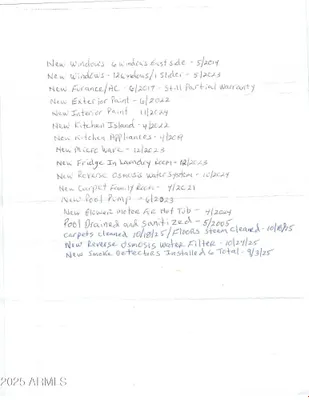 New Windows 6 windows east side - 5/2019
New Windows - 12 Windows/1 Slider - 5/2023
New Furance/AC 6/2017 - Still Partial Warranty
New Exterior Paint - 6/2022
New Interior Paint 11/2024
New Kitchen Island - 4/2022
New Kitchen Appliances - 4/2019
New Microwave - 12/2023
New Fridge In Laundry Room - 12/2023
New Reverse Osmosis Water System - 10/2024
New Carpet Family Room - 4/2021
New Pool Pump - 6/2023
New Blower Motor for Hot Tub - 4/2024
Pool Drained and Sanitized - 5/2025
Carpets cleaned 10/18/25 / Floors Steam Cleaned - 10/8/25
New Reverse Osmosis Water Filter - 10/24/25
New Smoke Detectors Installed 6 Total - 9/3/25
2025 ARMLS